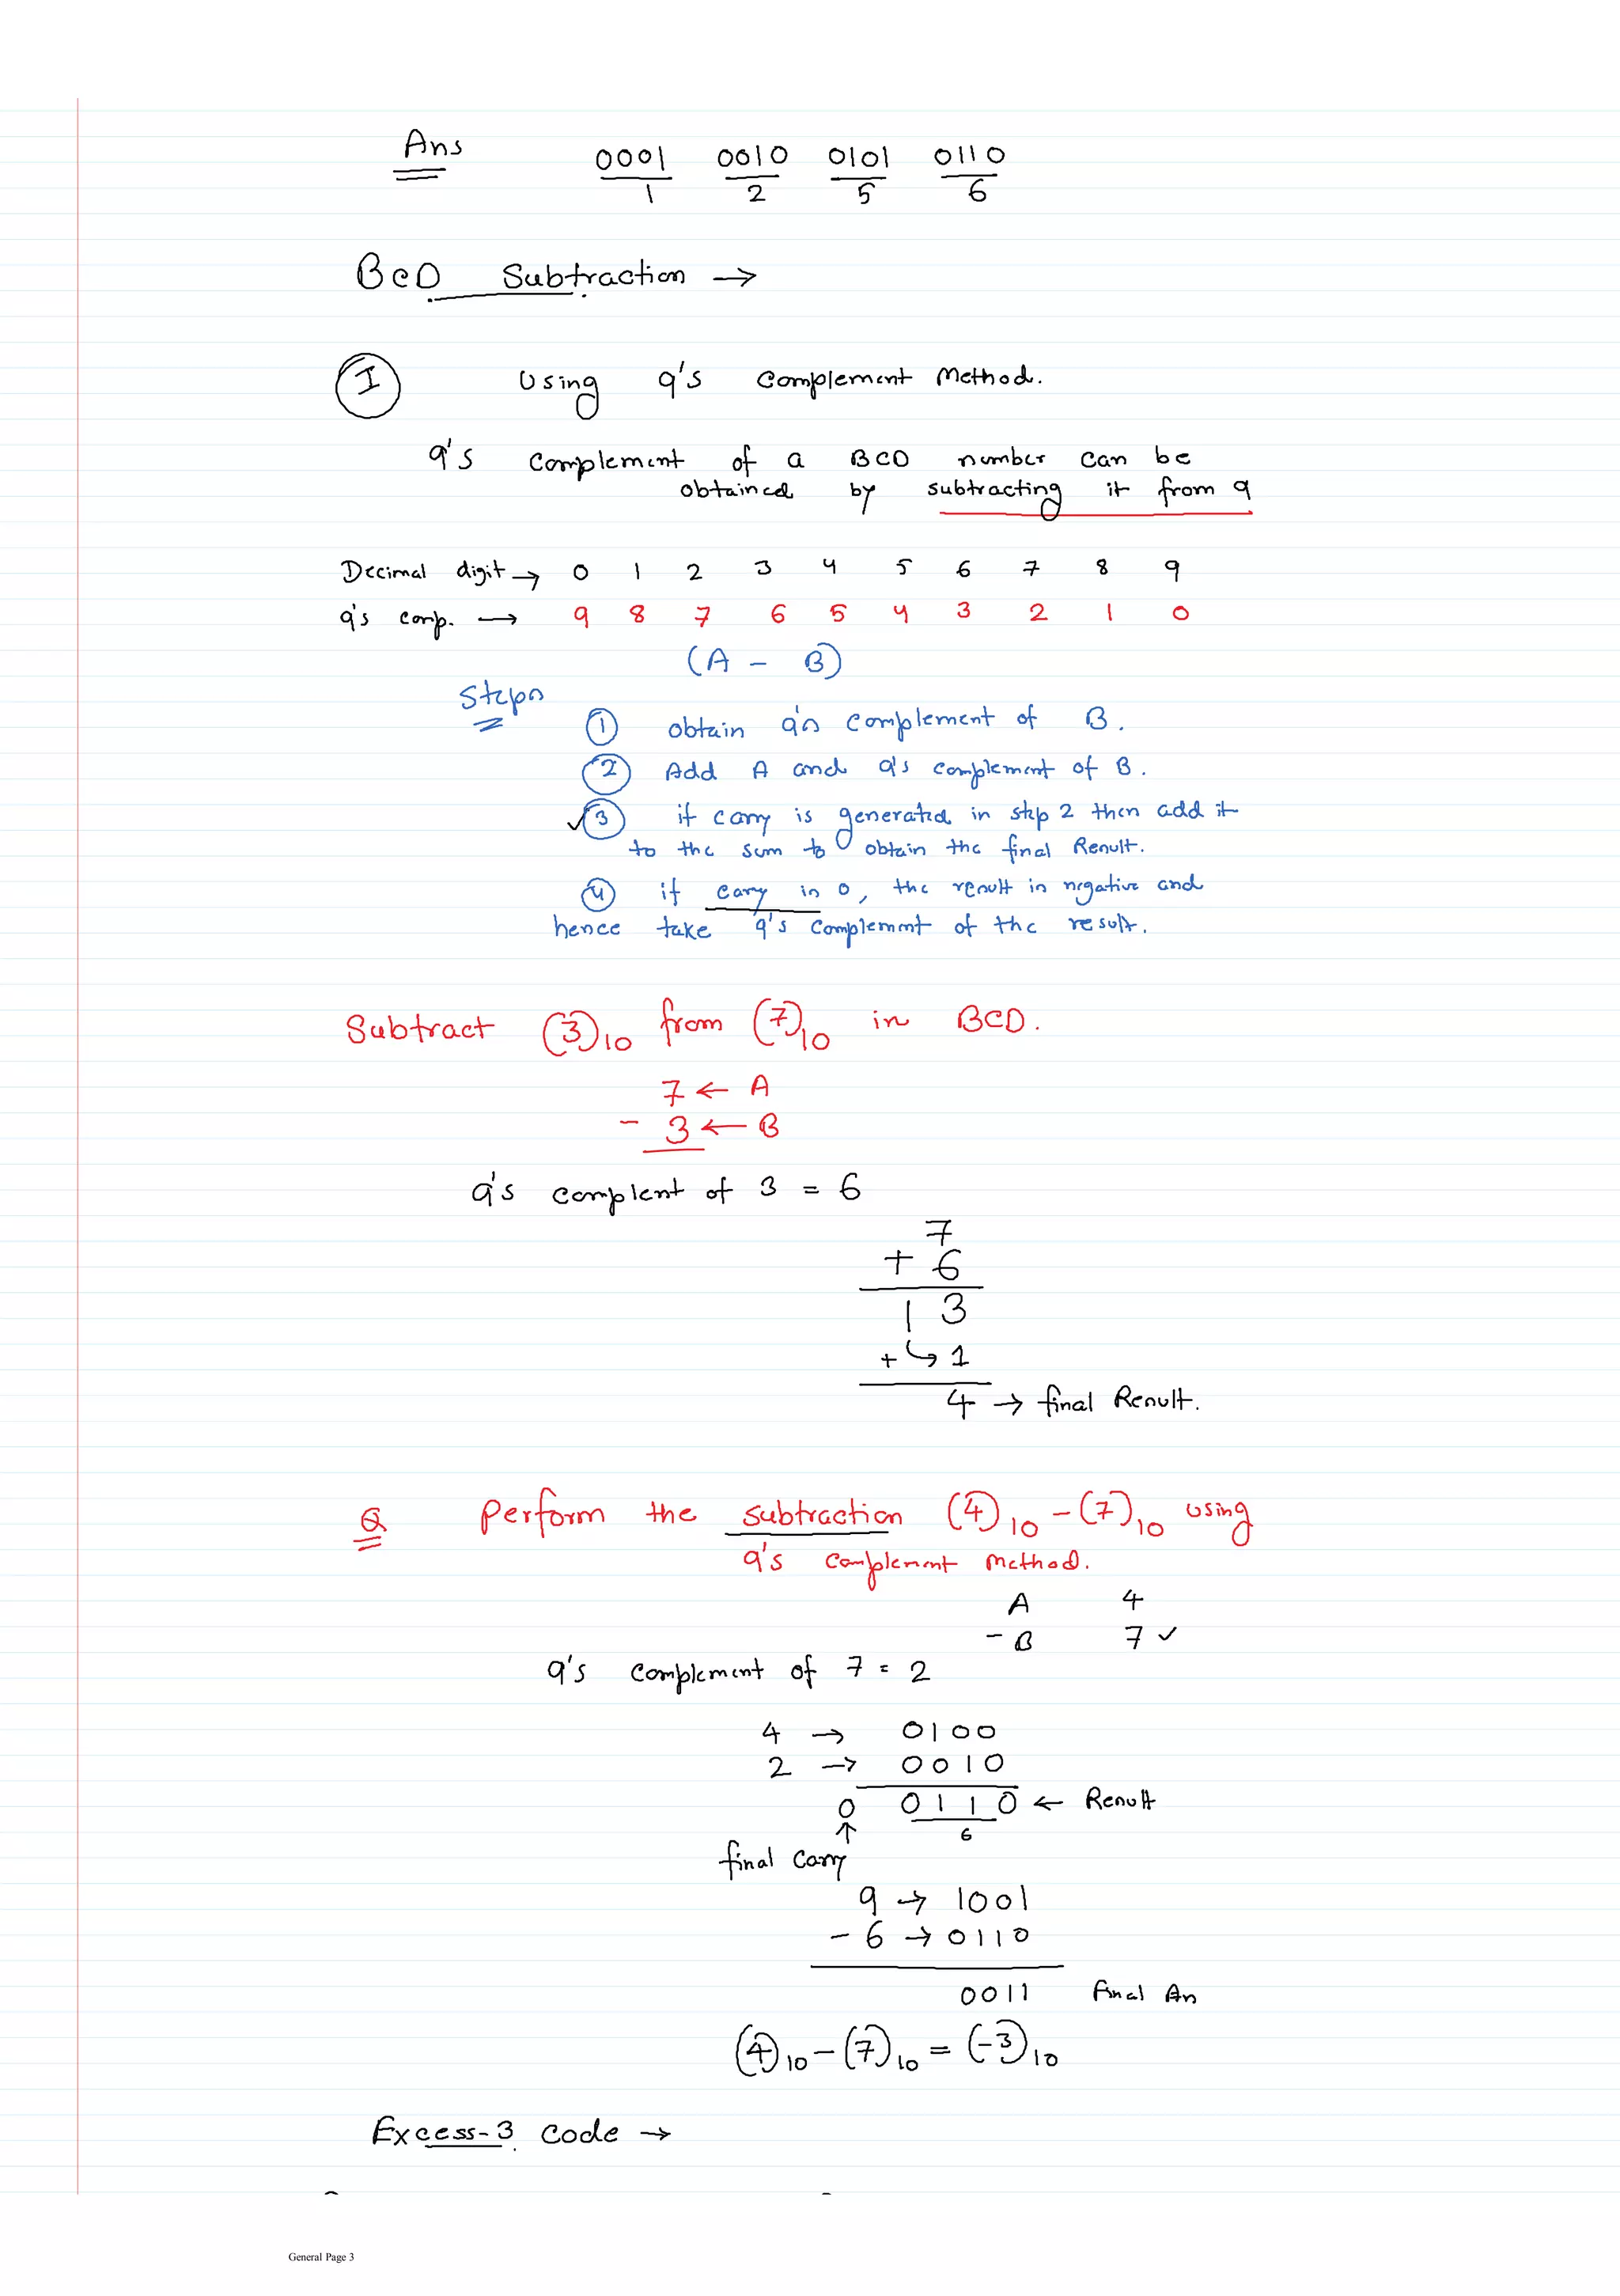 Ans 0001 0010 0101 0110
1 2 5 6
BCD Subtraction →
I Using 9's complement Method.
9's complement of a BCD number can be
obtained by subtracting it from 9
Decimal digit → 0 1 2 3 4 5 6 7 8 9
9's comp. → 9 8 7 6 5 4 3 2 1 0
(A - B)
Steps
1 obtain 9's complement of B.
2 Add A and 9's complement of B.
✓3 if carry is generated in step 2 then add it
to the sum to obtain the final Result.
4 if carry is 0, the result is negative and
hence take 9's complemnt of the result.
Subtract (3)10 from (7)10 in BCD.
7 ← A
- 3 ← B
9's complent of 3 = 6
7
+ 6
1 3
+ ↳ 1
4 → final Result.
Q Perform the subtraction (4)10 - (7)10 using
9's complement method.
A 4
- B 7 ✓
9's complement of 7 = 2
4 → 0100
2 → 0010
0 0110 ← Result
↑ 6
final carry
9 → 1001
- 6 → 0110
0011 final An
(4)10 - (7)10 = (-3)10
Excess-3 code →
General Page 3